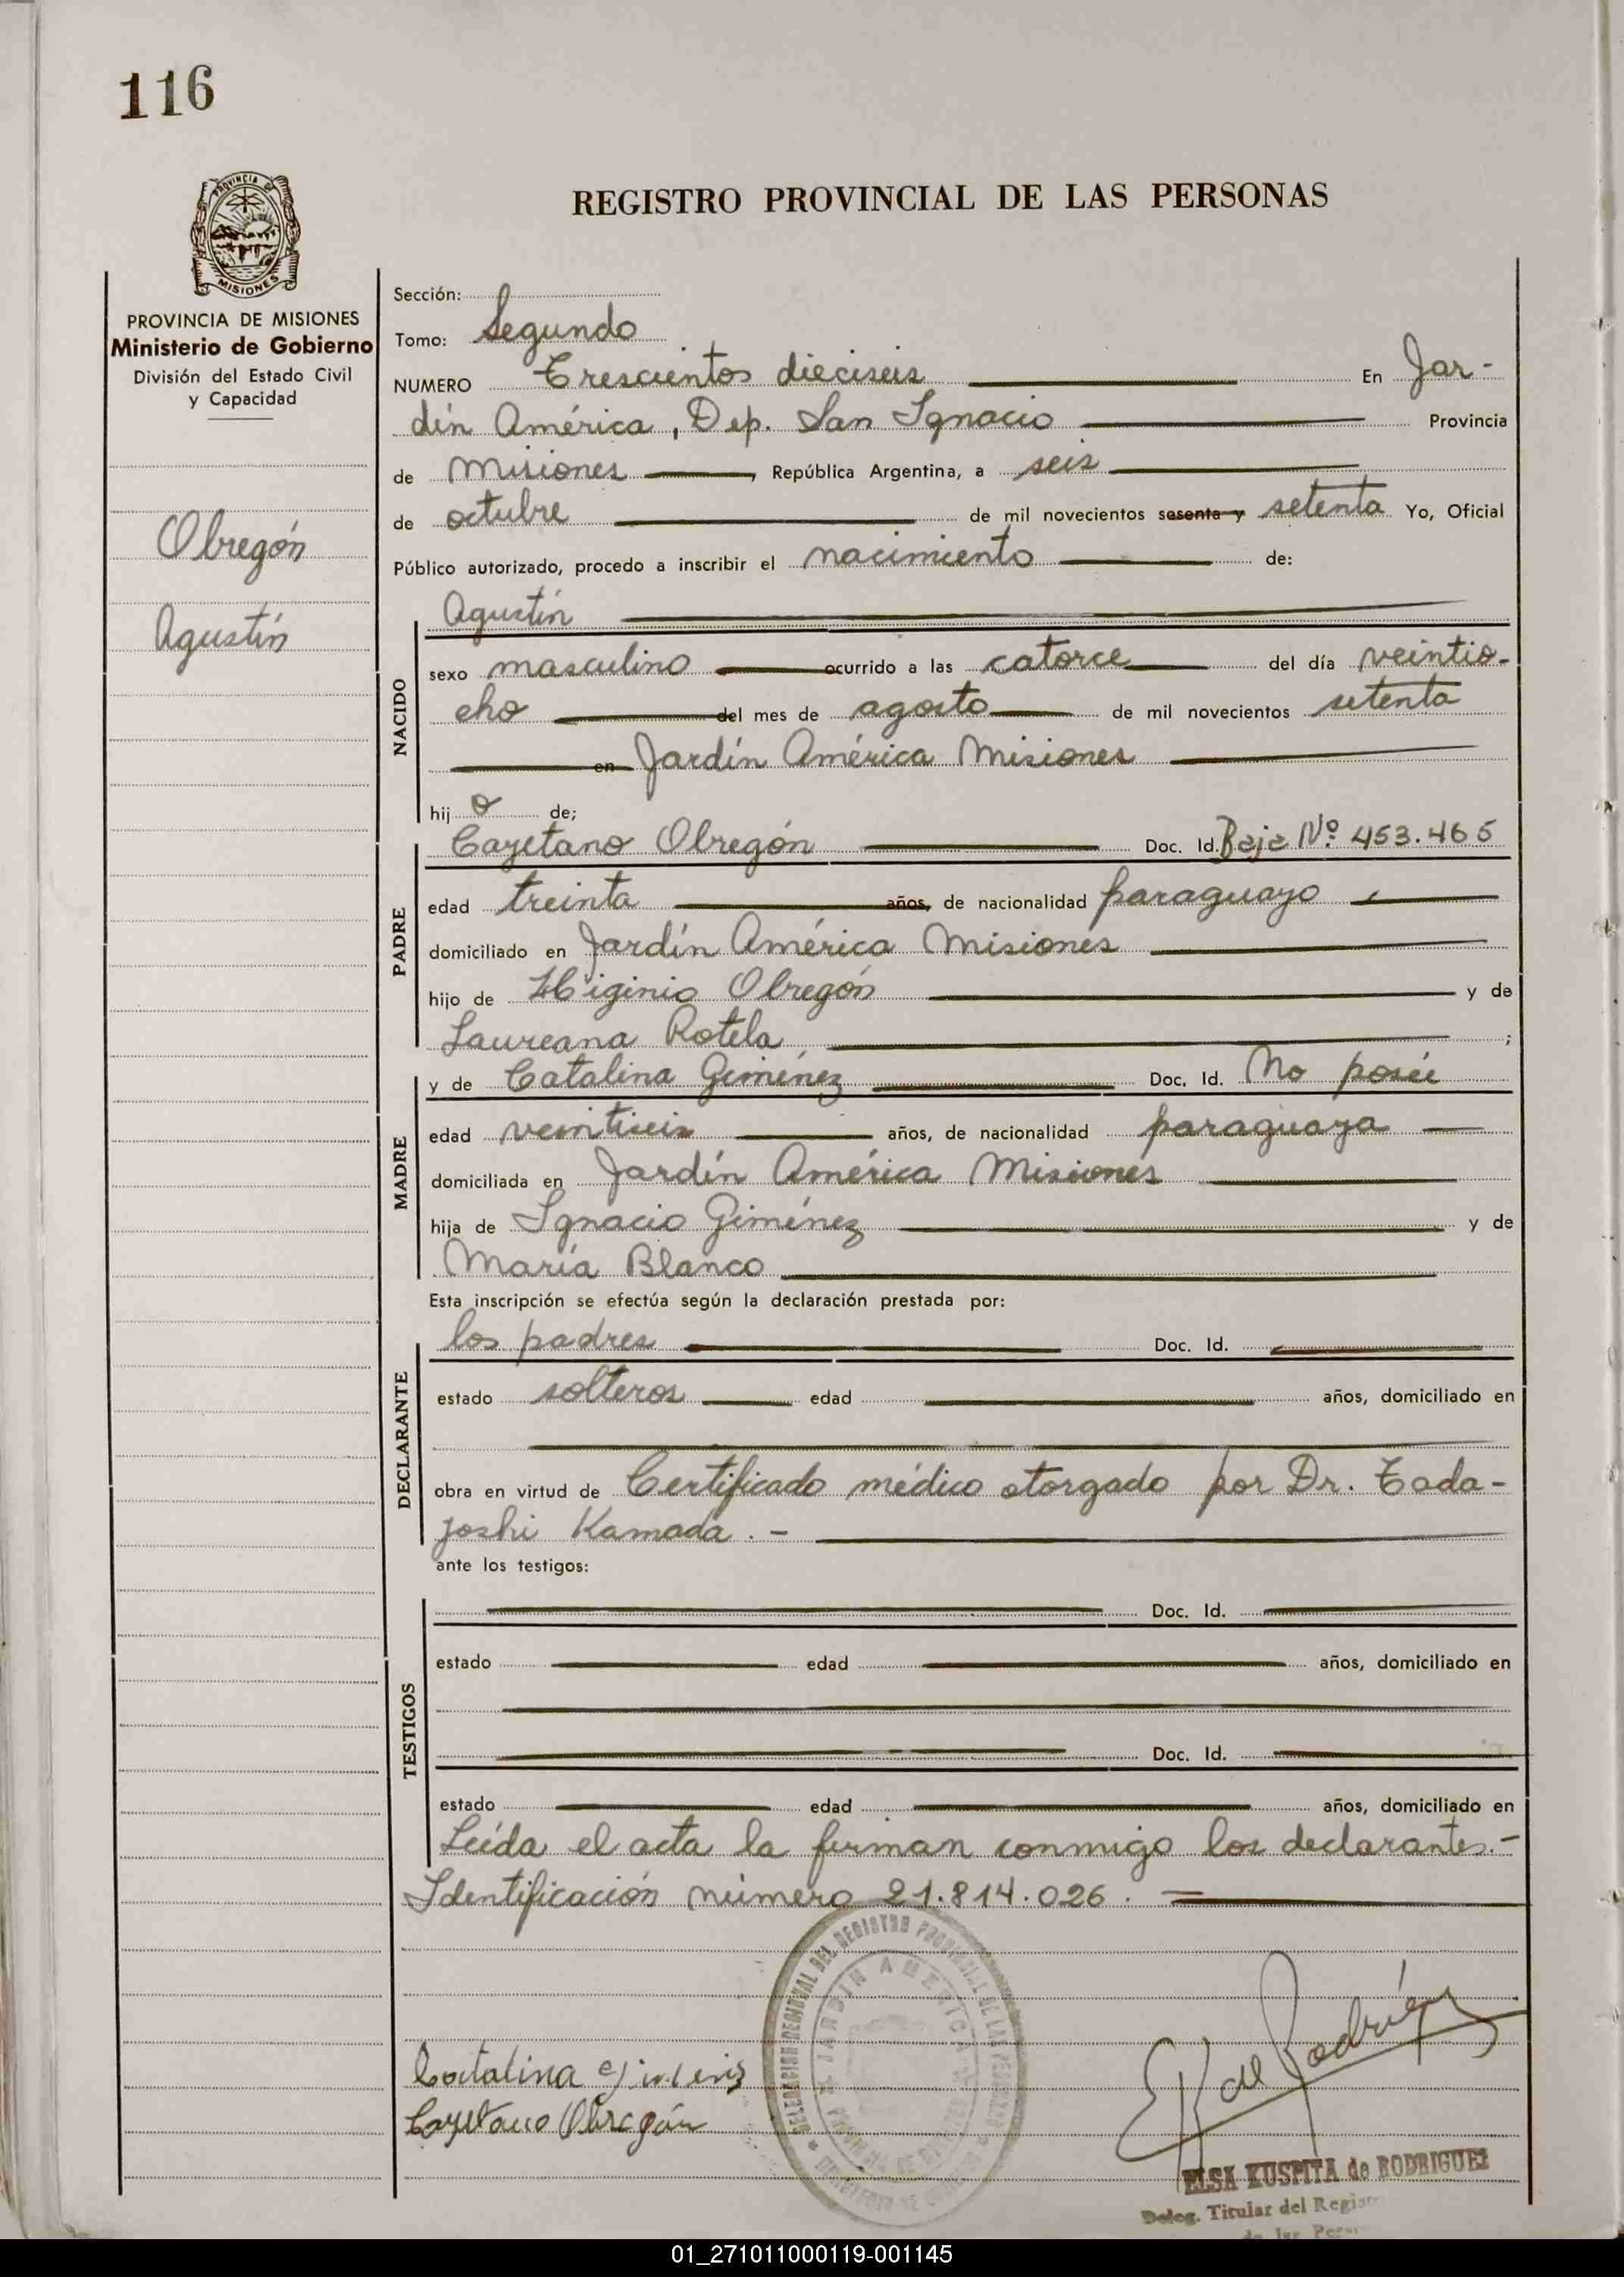 116
PROVINCIA DE
MISIONES
REGISTRO PROVINCIAL DE LAS PERSONAS
PROVINCIA DE MISIONES
Ministerio de Gobierno
División del Estado Civil
y Capacidad
Obregón
Agustín
Sección:
Tomo: Segundo
NUMERO Trescientos dieciseis En Jar-
dín América, Dep. San Ignacio Provincia
de Misiones, República Argentina, a seis
de octubre de mil novecientos sesenta y setenta Yo, Oficial
Público autorizado, procedo a inscribir el nacimiento de:
NACIDO
Agustín
sexo masculino ocurrido a las catorce del día veintio-
cho del mes de agosto de mil novecientos setenta
en Jardín América Misiones
hijo de;
PADRE
Cayetano Obregón Doc. Id. Baja Nº 453.465
edad treinta años, de nacionalidad paraguayo
domiciliado en Jardín América Misiones
hijo de Higinio Obregón y de
Laureana Rotela ;
MADRE
y de Catalina Giménez Doc. Id. No posée
edad veintiseis años, de nacionalidad paraguaya
domiciliada en Jardín América Misiones
hija de Ignacio Giménez y de
María Blanco
Esta inscripción se efectúa según la declaración prestada por:
DECLARANTE
los padres Doc. Id.
estado solteros edad años, domiciliado en
obra en virtud de Certificado médico otorgado por Dr. Tada-
joshi Kamada. -
ante los testigos:
TESTIGOS
Doc. Id.
estado edad años, domiciliado en
Doc. Id.
estado edad años, domiciliado en
Leída el acta la firman conmigo los declarantes.-
Identificación número 21.814.026. =
DELEGACION REGIONAL DEL REGISTRO PROVINCIAL DE LAS PERSONAS
JARDIN AMERICA
Catalina
Cayetano Obregón
E K de Rodríguez
ELSA KUSPITA de RODRIGUEZ
Deleg. Titular del Regis
de las Pers
01_271011000119-001145